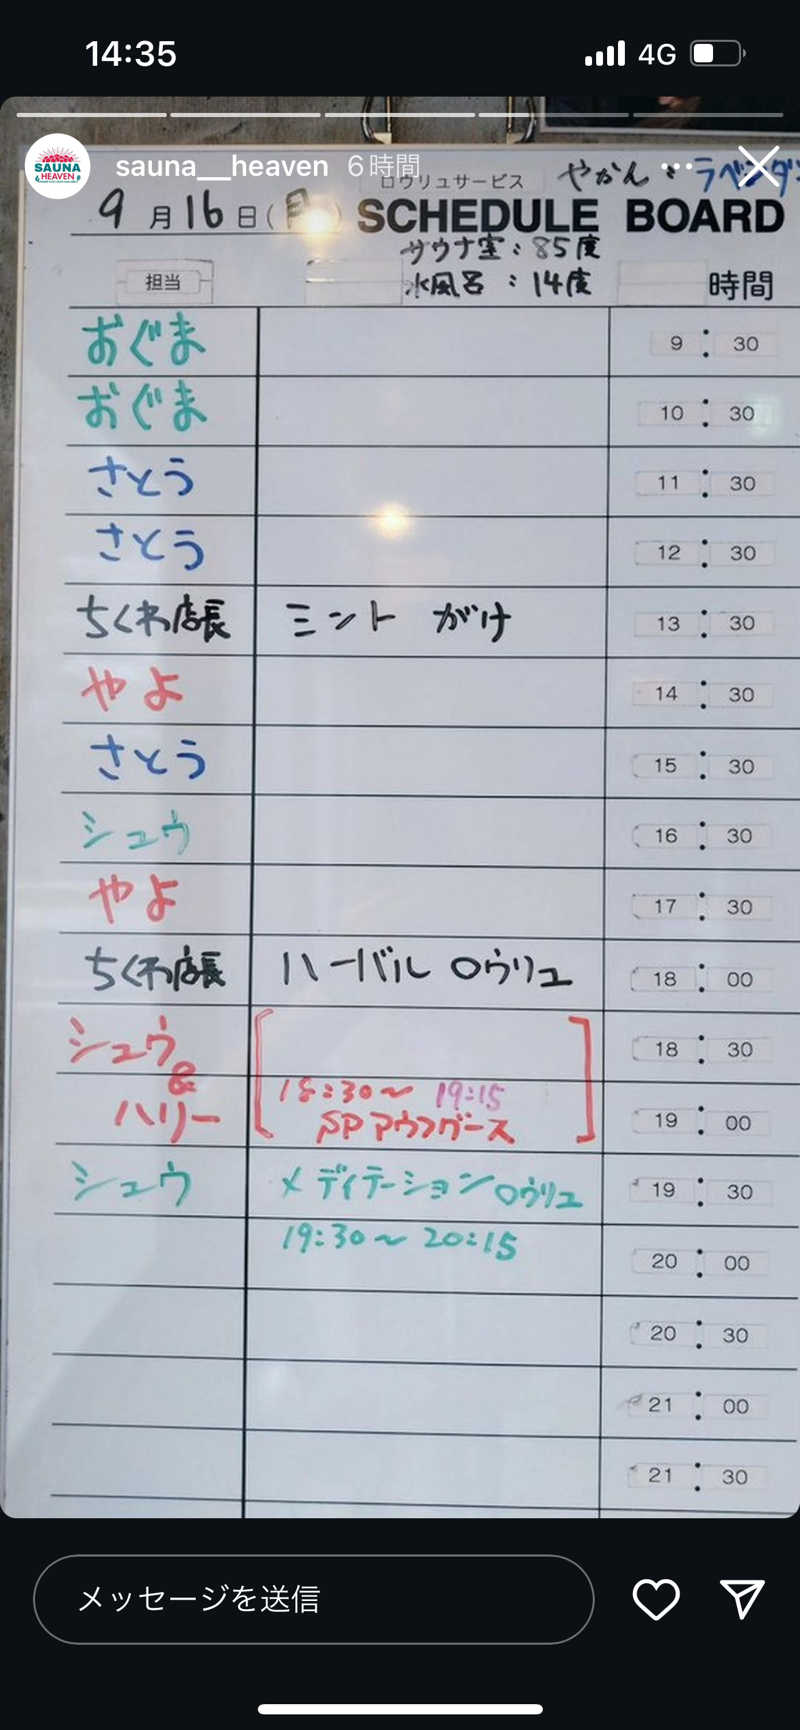 14:35
4G
SAUNA HEAVEN
sauna__heaven 6時間
ロウリュサービス やかん:ラベンダー
9月16日(月) SCHEDULE BOARD
サウナ室:85度
水風呂:14度
担当 時間
おぐま 9:30
おぐま 10:30
さとう 11:30
さとう 12:30
ちくわ店長 ミント がけ 13:30
やよ 14:30
さとう 15:30
シュウ 16:30
やよ 17:30
ちくわ店長 ハーバル ロウリュ 18:00
シュウ 18:30
&
18:30〜19:15
ハリー SPアウフグース 19:00
シュウ メディテーションロウリュ 19:30
19:30〜20:15
20:00
20:30
21:00
21:30
メッセージを送信